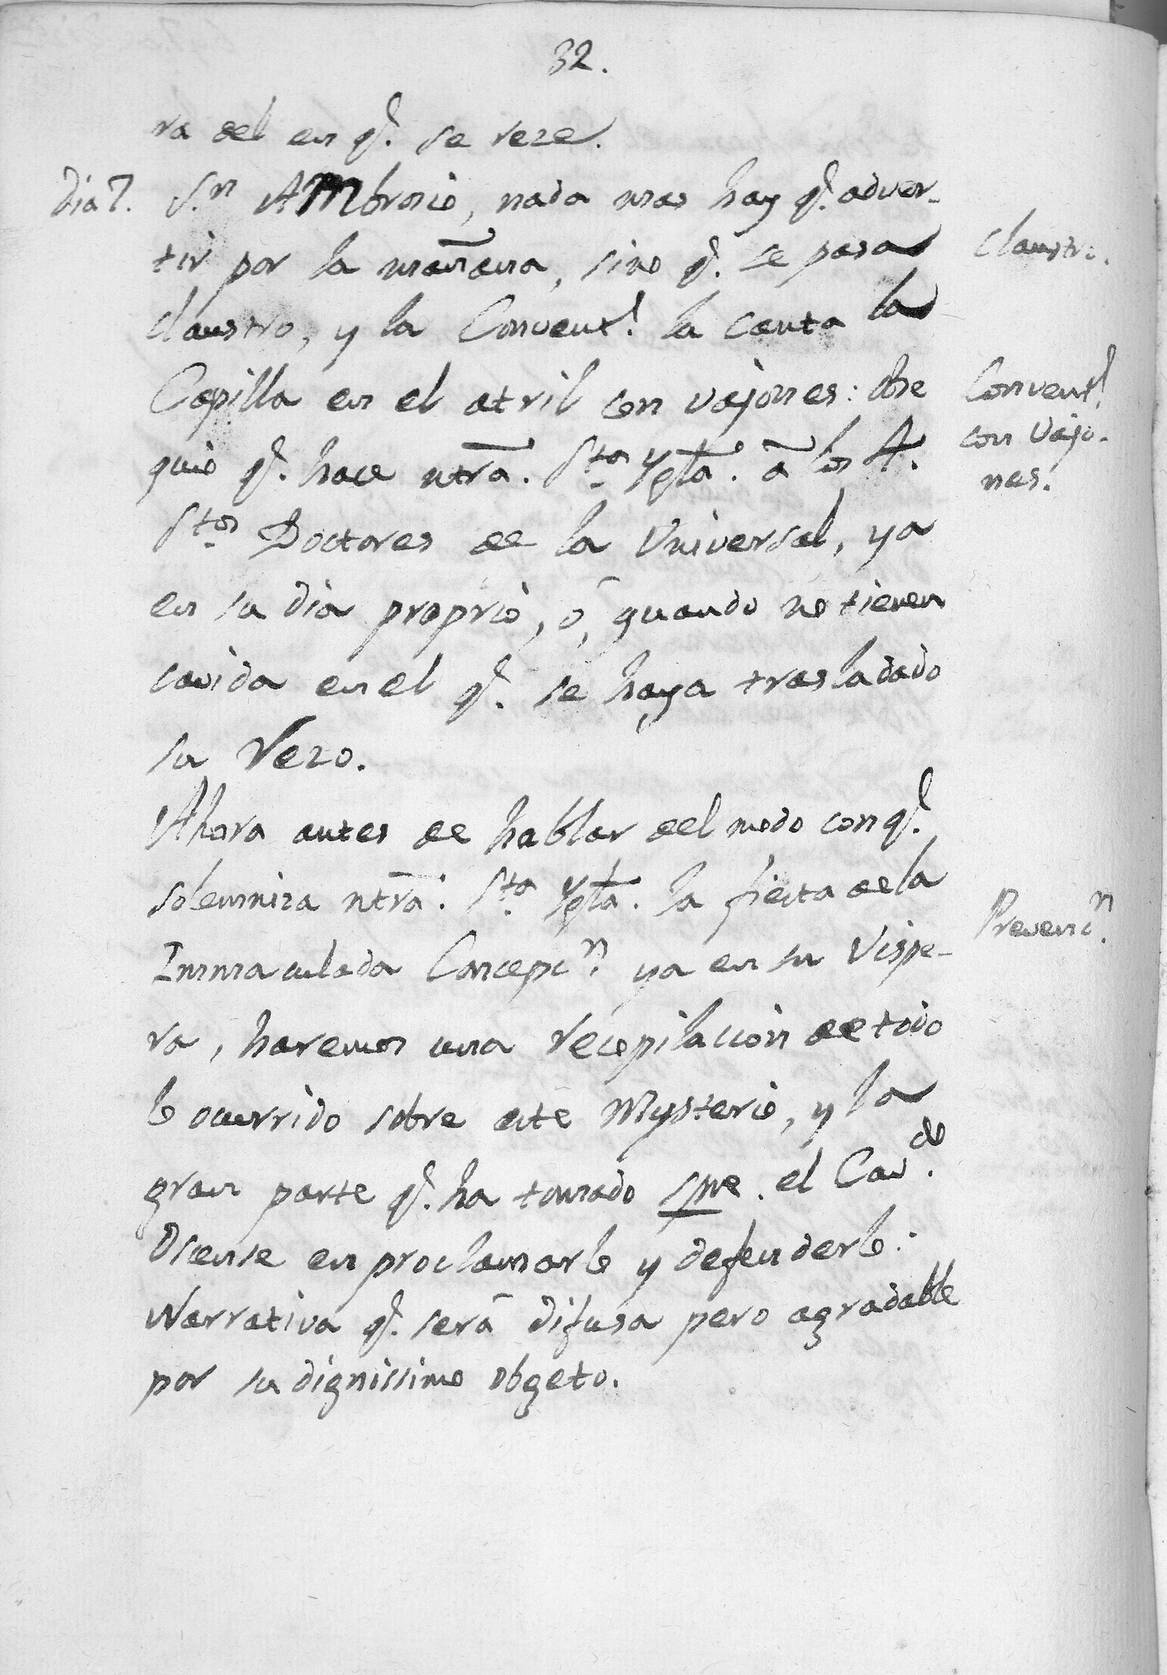 32.
ra del en q.e se reze.
Dia 7. S.n AMbrosio, nada mas hay q.e adver-
tir por la mañana, sino q.e se pasa
Claustro.
claustro, y la Convent.l la canta la
Capilla en el atril con vajones: obse
Convent.l
con vajo-
nes.
quio q.e hace ntrã. S.ta Yglã. â los 4.
S.tos Doctores de la Universal, ya
en su dia proprio, ó, quando no tienen
cavida en el q.e se haya trasladado
su Rezo.
Ahora antes de hablar del modo con q.e
solemniza ntrã. S.ta Yglã. la fiesta de la
Prevenc.n
Inmaculada Concepc.n ya en su Vispe-
ra, haremos una recopilacion de todo
lo ocurrido sobre este Mysterio, y la
gran parte q.e ha tomado spre. el Cav.do
Oscense en proclamarlo y defenderlo:
Narrativa q.e será difusa pero agradable
por su dignissimo obgeto.